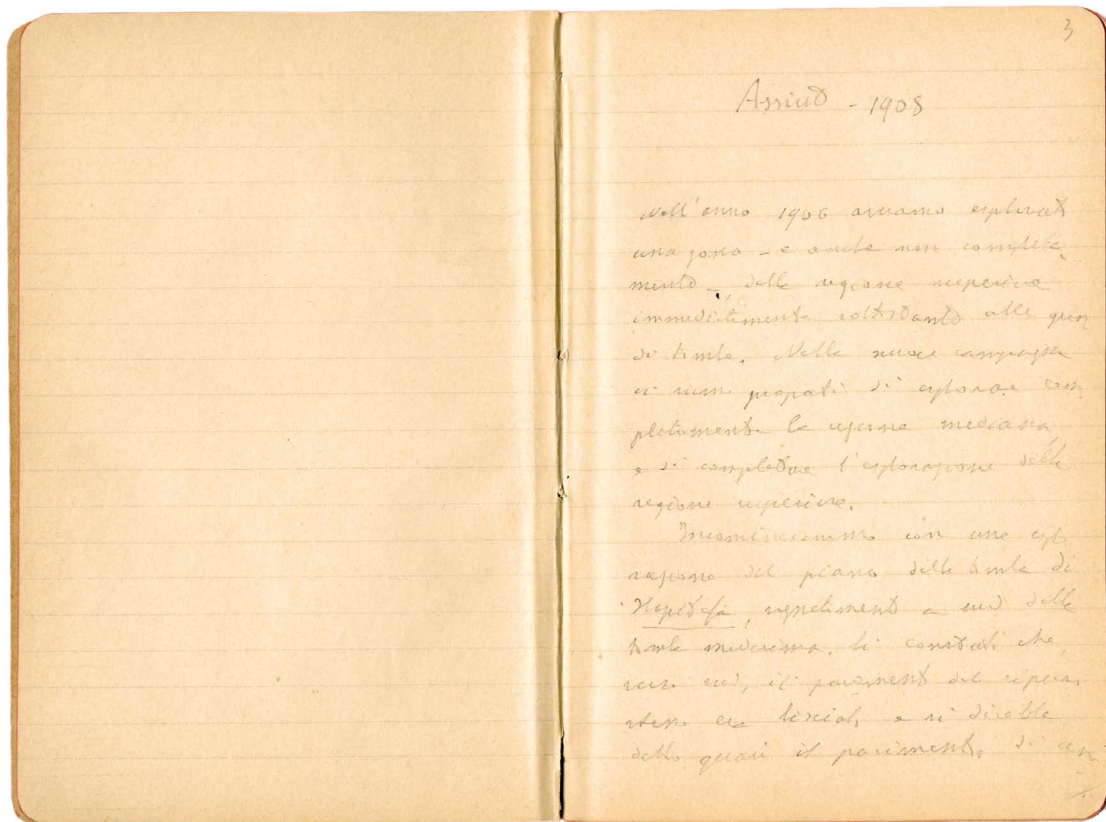 3
Assiut - 1908
Nell'anno 1906 avevamo esplorato
una zona - e anche non completa-
mente - della regione superiore
immediatamente sottostante alle gran
di tombe. Nella nuova campagna
ci siam proposti di esplorare com
pletamente la regione mediana,
e di completare l'esplorazione della
regione superiore.
Incominciammo con una esplo
razione del piano della tomba di
Hapidefa, a sud della
tomba medesima. Si constatò che,
verso sud, il pavimento del ripiano
stesso era lisciato e si direbbe
detto quasi il pavimento, di